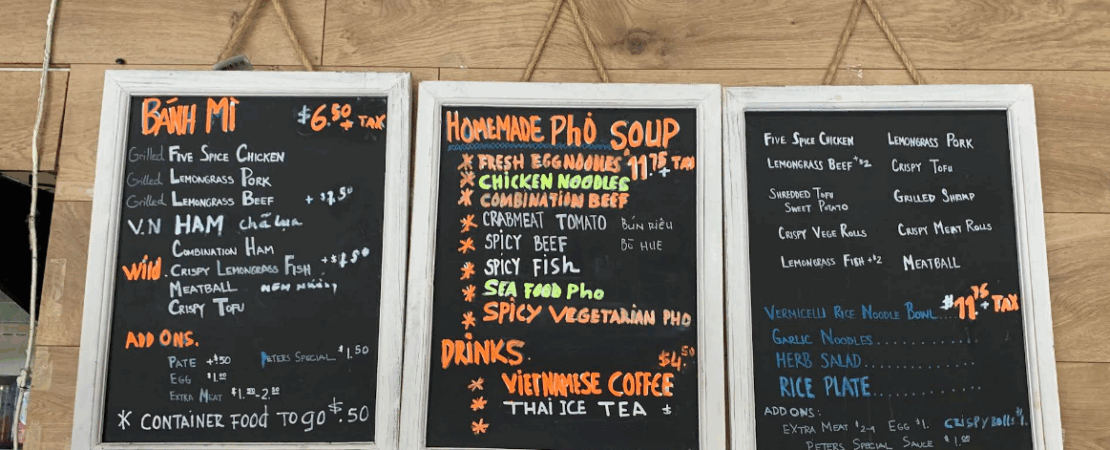 BÁNH MÌ $6.50 + TAX
Grilled FIVE SPICE CHICKEN
Grilled LEMONGRASS PORK
Grilled LEMONGRASS BEEF + $1.50
V.N HAM chả lụa
COMBINATION HAM
Wild CRISPY LEMONGRASS FISH + $1.50
MEATBALL NEM NƯỚNG
CRISPY TOFU
ADD ONS.
PATE + $.50 PETERS SPECIAL $1.50
EGG $1.00
EXTRA MEAT $1.50-2.50
* CONTAINER FOOD TO go $.50
HOMEMADE Phở SOUP
* FRESH EGG NOODLES $11.75 + TAX
* CHICKEN NOODLES
* COMBINATION BEEF
* CRABMEAT TOMATO BÚN RIÊU
* SPICY BEEF BÒ HUE
* SPICY FISH
* SEA FOOD Pho
* SPICY VEGETARIAN PHO
DRINKS $4.50
* VIETNAMESE COFFEE
* THAI ICE TEA
*
FIVE SPICE CHICKEN LEMONGRASS PORK
LEMONGRASS BEEF +$2 CRISPY TOFU
SHREDDED TOFU GRILLED SHRIMP
SWEET POTATO
CRISPY VEGE ROLLS CRISPY MEAT ROLLS
LEMONGRASS FISH +$2 MEATBALL
$11.75 + TAX
VERMICELLI RICE NOODLE BOWL...
GARLIC NOODLES...........
HERB SALAD..............
RICE PLATE............
ADD ONS:
EXTRA MEAT $2-4 EGG $1. CRISPY ROLLS $1.
PETERS SPECIAL SAUCE $1.00